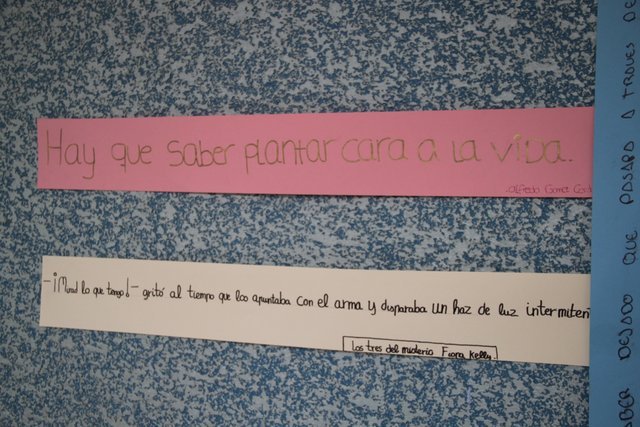 Hay que saber plantar cara a la vida.
Alfredo Gomez
-¡Mirad lo que tengo!- gritó al tiempo que los apuntaba con el arma y disparaba un haz de luz intermiten
Los tres del misterio Fiona Kelly.
ABER DEJADO QUE PASARA A TRAVES DE